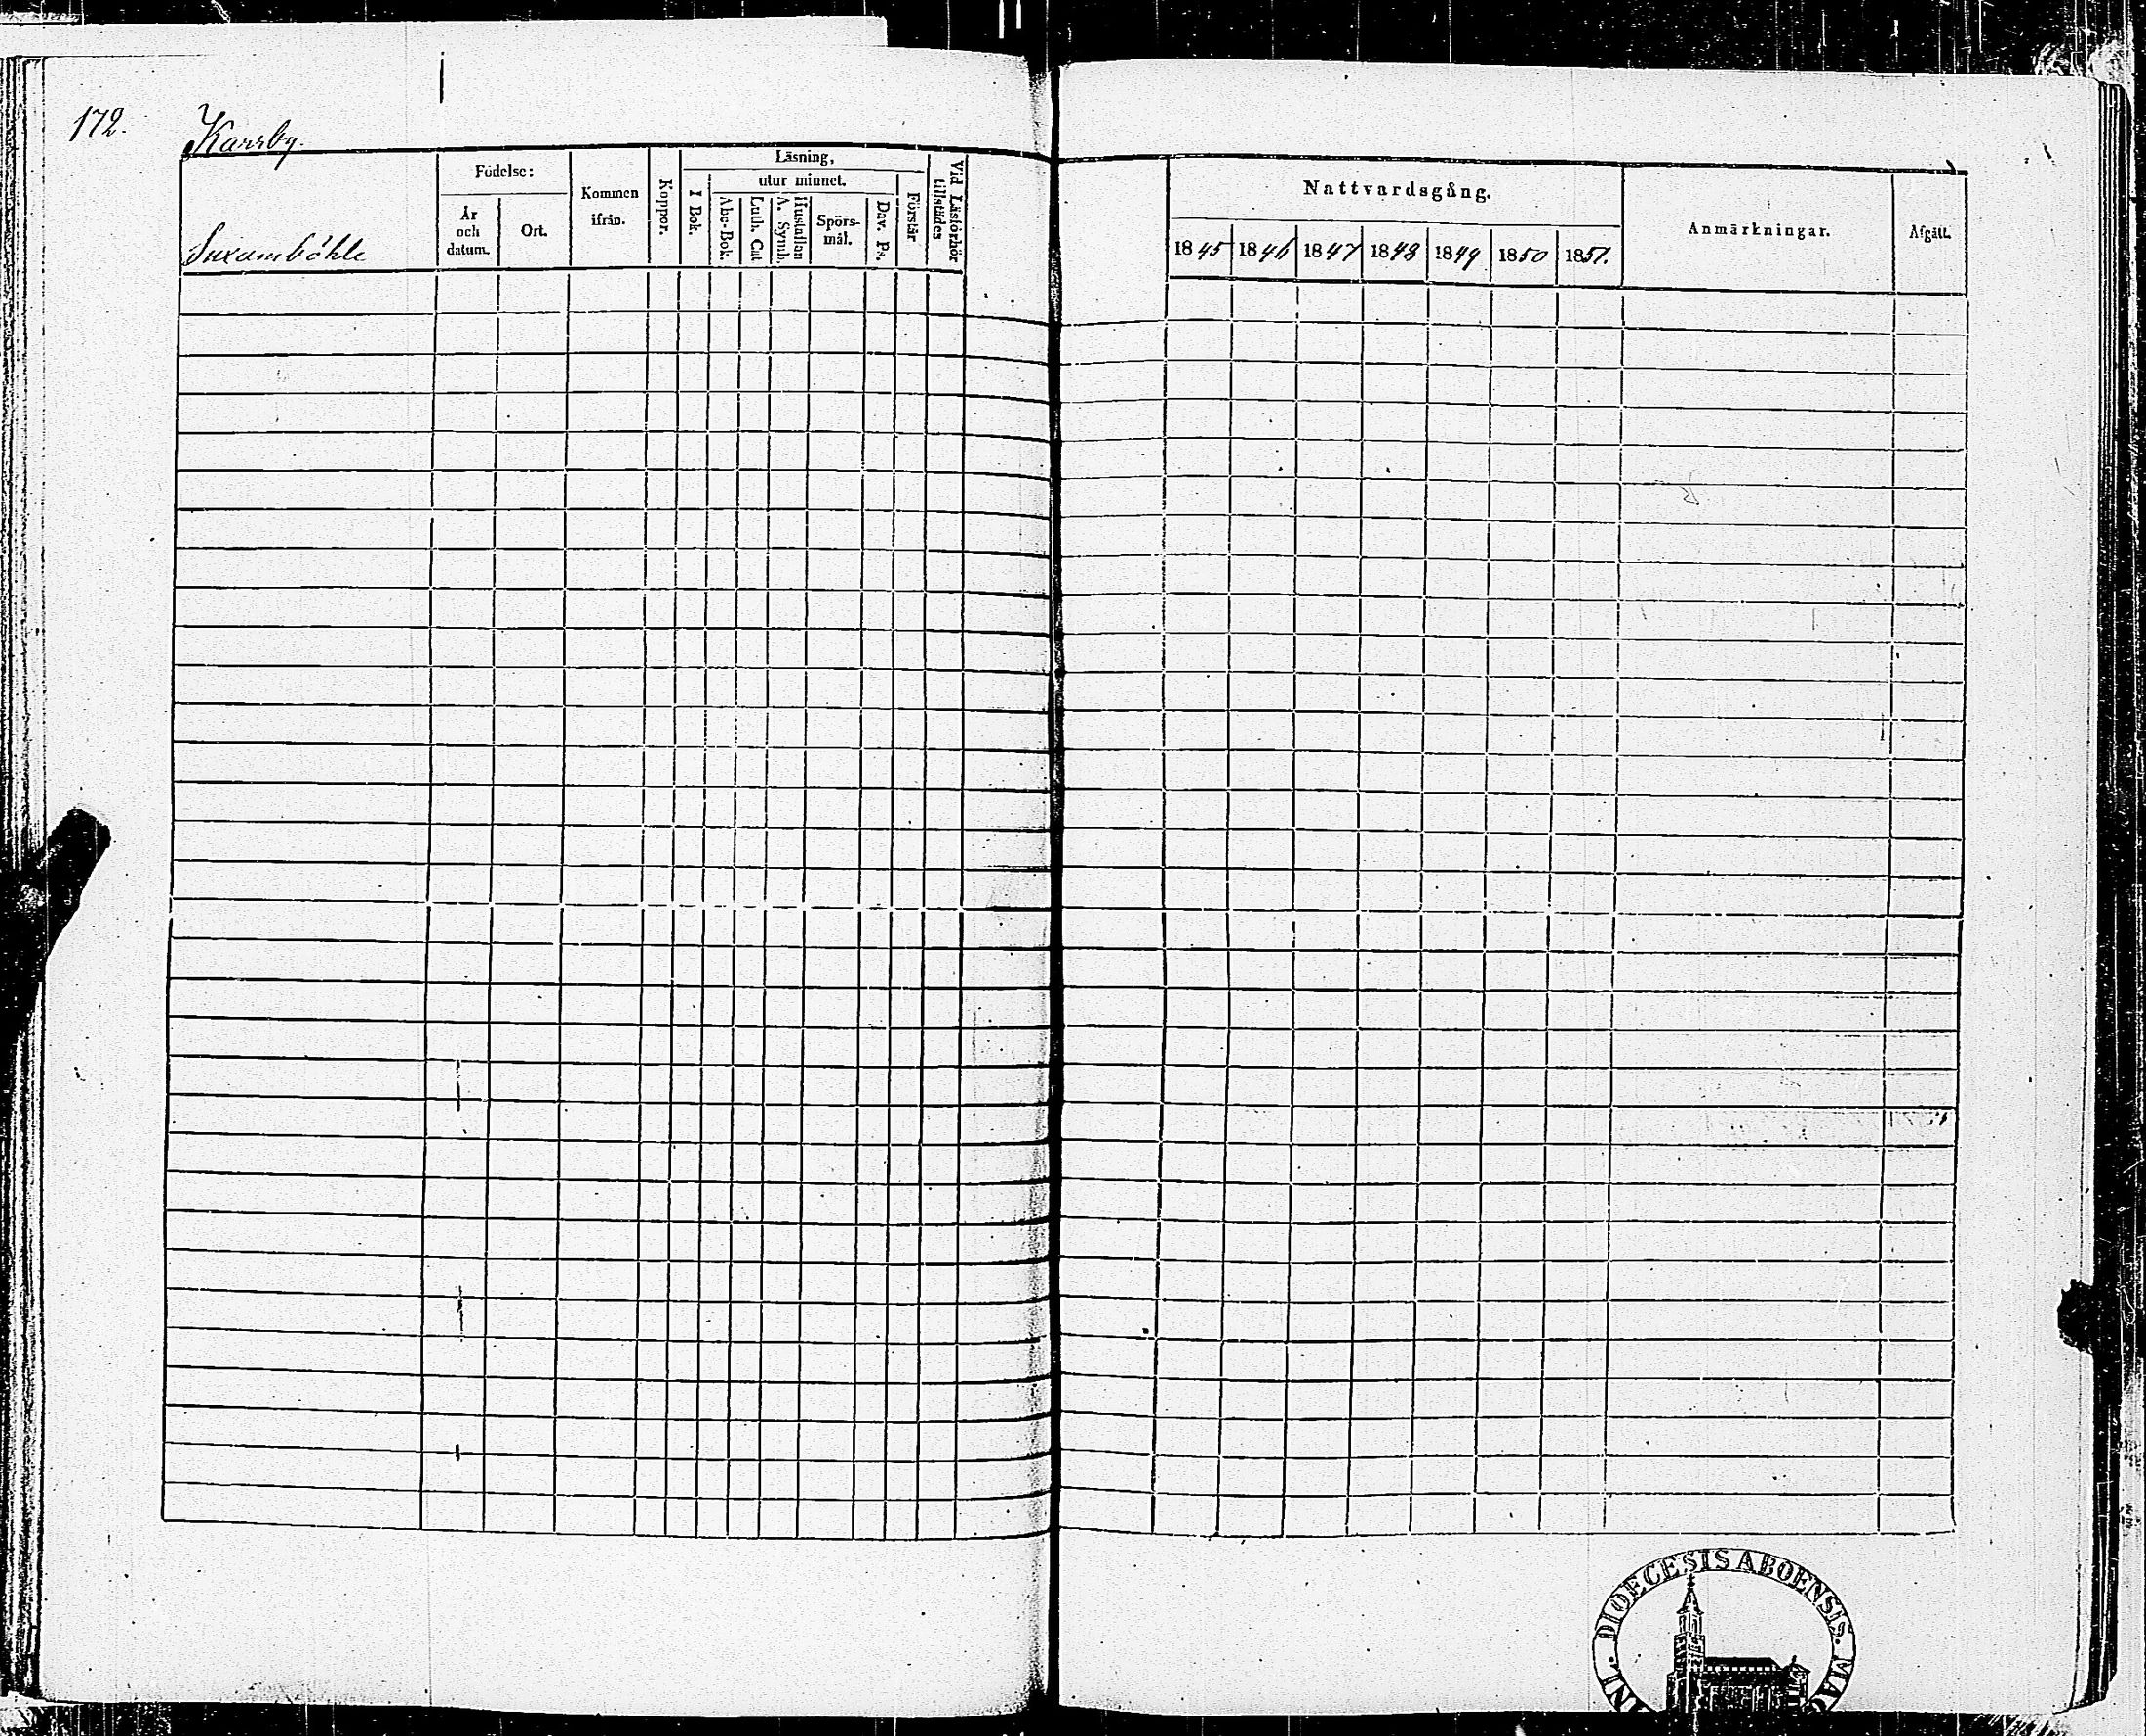 172.
Karrby.
Suxamböhle
Födelse:
År
och
datum.
Ort.
Kommen
ifrån.
Koppor.
Läsning,
I Bok.
utur minnet.
Abc-Bok.
Luth. Cat
Hustaflan
A. Symb.
Spörs-
mål.
Dav. Ps.
Förstår
Vid Läsförhör
tillstädes
Nattvardsgång.
1845 1846 1847 1848 1849 1850 1851.
Anmärkningar.
Afgått.
DIOECESIS ABOENSIS. MAG